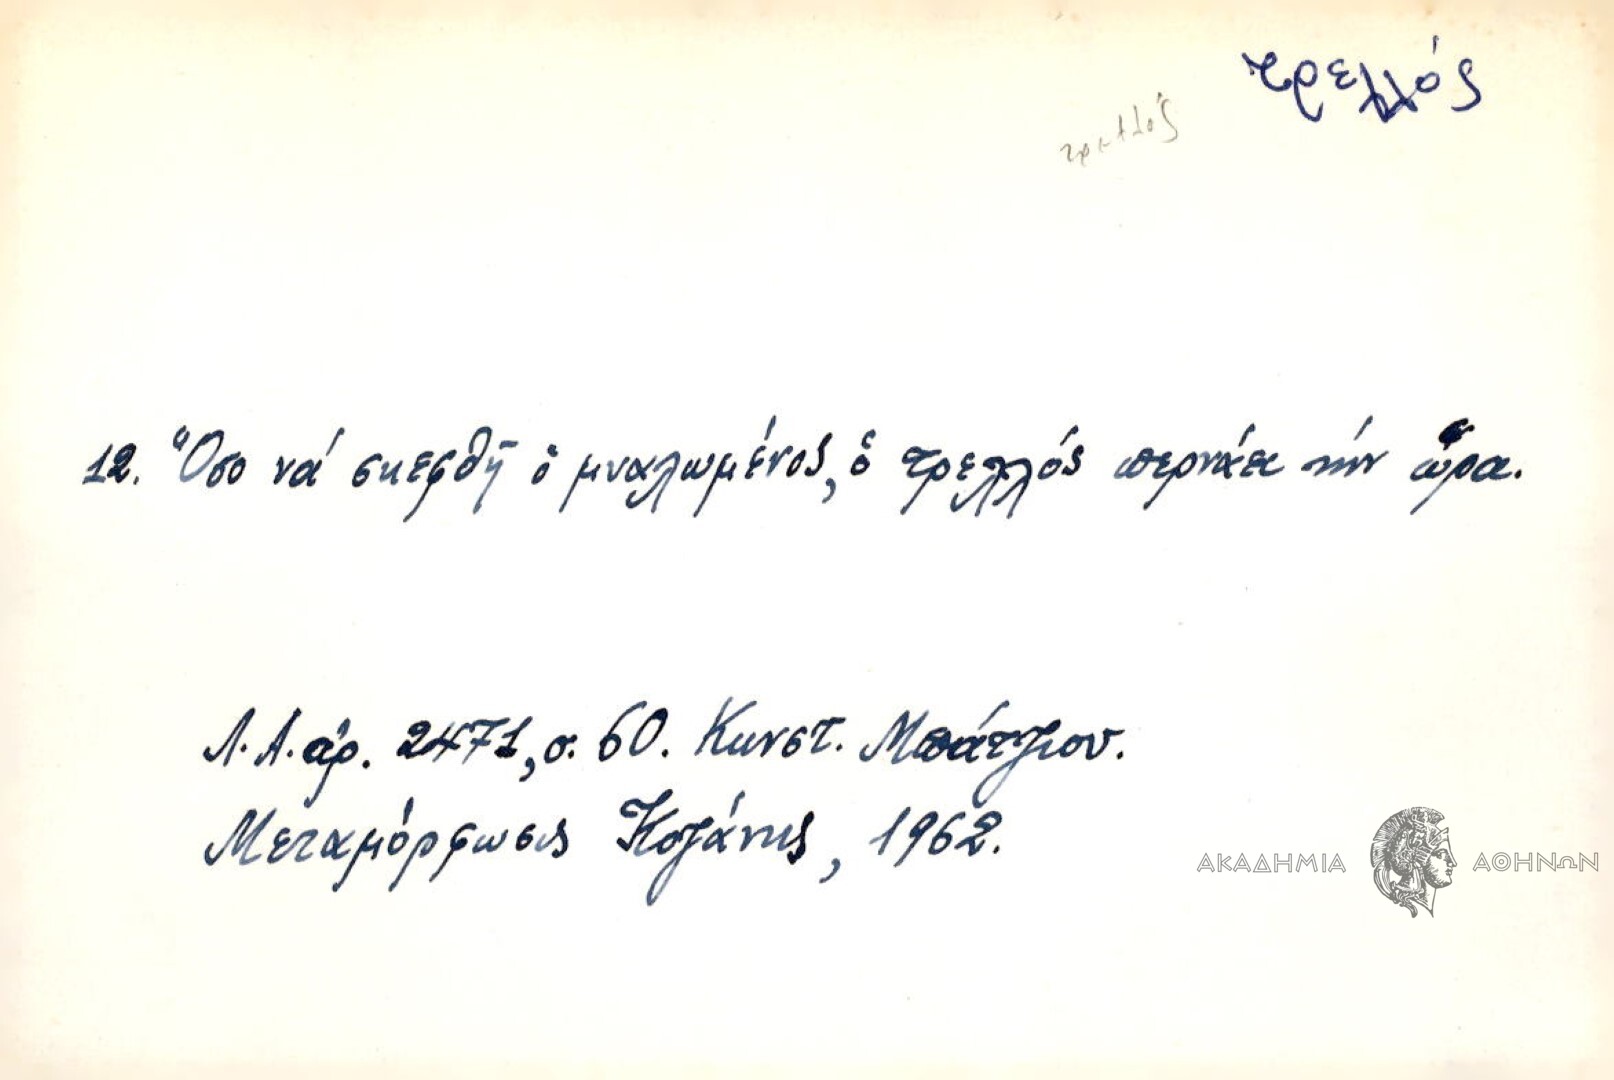 τρελλός
τρελλός
12. Ὅσο νά σκεφθῆ ὁ μυαλωμένος, ὁ τρελλός περνάει τήν ὥρα.
Λ.Α. ἀρ. 2471, σ. 60. Κωνστ. Μπάτζιου.
Μεταμόρφωσις Κοζάνης, 1962.
ΑΚΑΔΗΜΙΑ ΑΘΗΝΩΝ